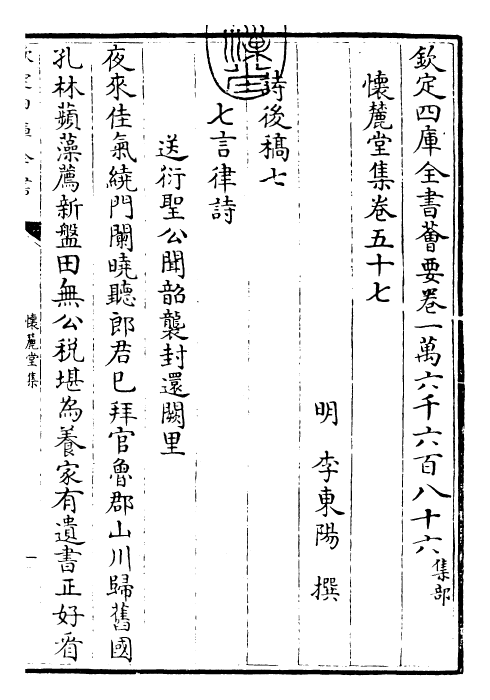 欽定四庫全書薈要卷一萬六千六百八十六集部
懷麓堂集卷五十七
明 李東陽 撰
詩後稿七
七言律詩
送衍聖公聞韶襲封還闕里
夜來佳氣繞門闌曉聽郎君已拜官魯郡山川歸舊國
孔林蘋藻薦新盤田無公税堪為養家有遺書正好看
懷麓堂集
一